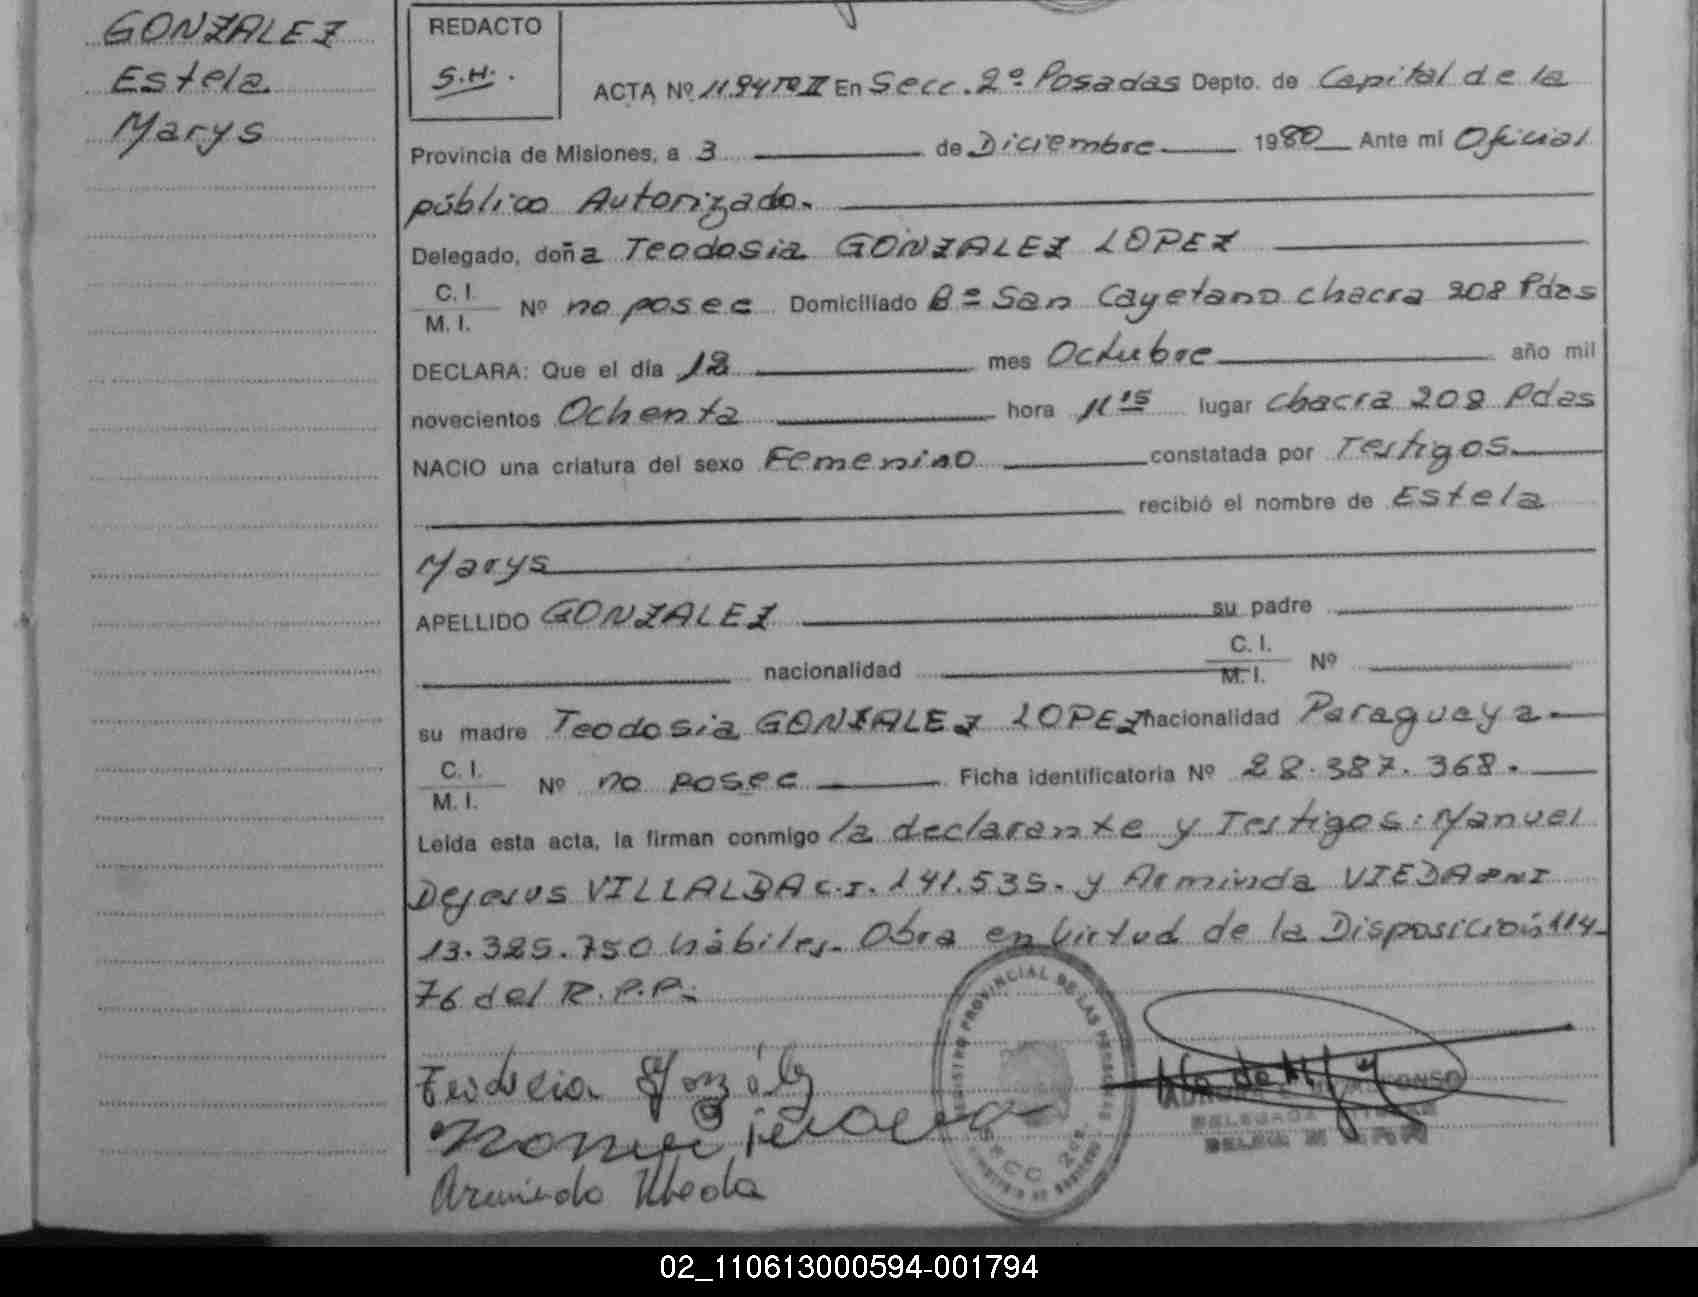 GONZALEZ
Estela
Marys
REDACTO
S.H.
ACTA Nº 1194 Tº II En Secc. 2º Posadas Depto. de Capital de la
Provincia de Misiones, a 3 de Diciembre 1980 Ante mi Oficial
público Autorizado.
Delegado, doña Teodosia GONZALEZ LOPEZ
C. I.
M. I. Nº no posee Domiciliado Bº San Cayetano chacra 208 Pdas
DECLARA: Que el día 12 mes Octubre año mil
novecientos Ochenta hora 11 15 lugar chacra 208 Pdas
NACIO una criatura del sexo Femenino constatada por Testigos
recibió el nombre de Estela
Marys
APELLIDO GONZALEZ su padre
nacionalidad C. I. M. I. Nº
su madre Teodosia GONZALEZ LOPEZ nacionalidad Paraguaya
C. I.
M. I. Nº no posee Ficha identificatoria Nº 28.387.368.
Leída esta acta, la firman conmigo la declarante y Testigos: Manuel
Dejesus VILLALBA C.I. 141.535. y Arminda VIEDA DNI
13.325.750 hábiles. Obra en virtud de la Disposición 114-
76 del R.P.P.
REGISTRO PROVINCIAL DE LAS PERSONAS
SECC 2da.
Teodosia González
DELEGADA TITULAR
02_110613000594-001794